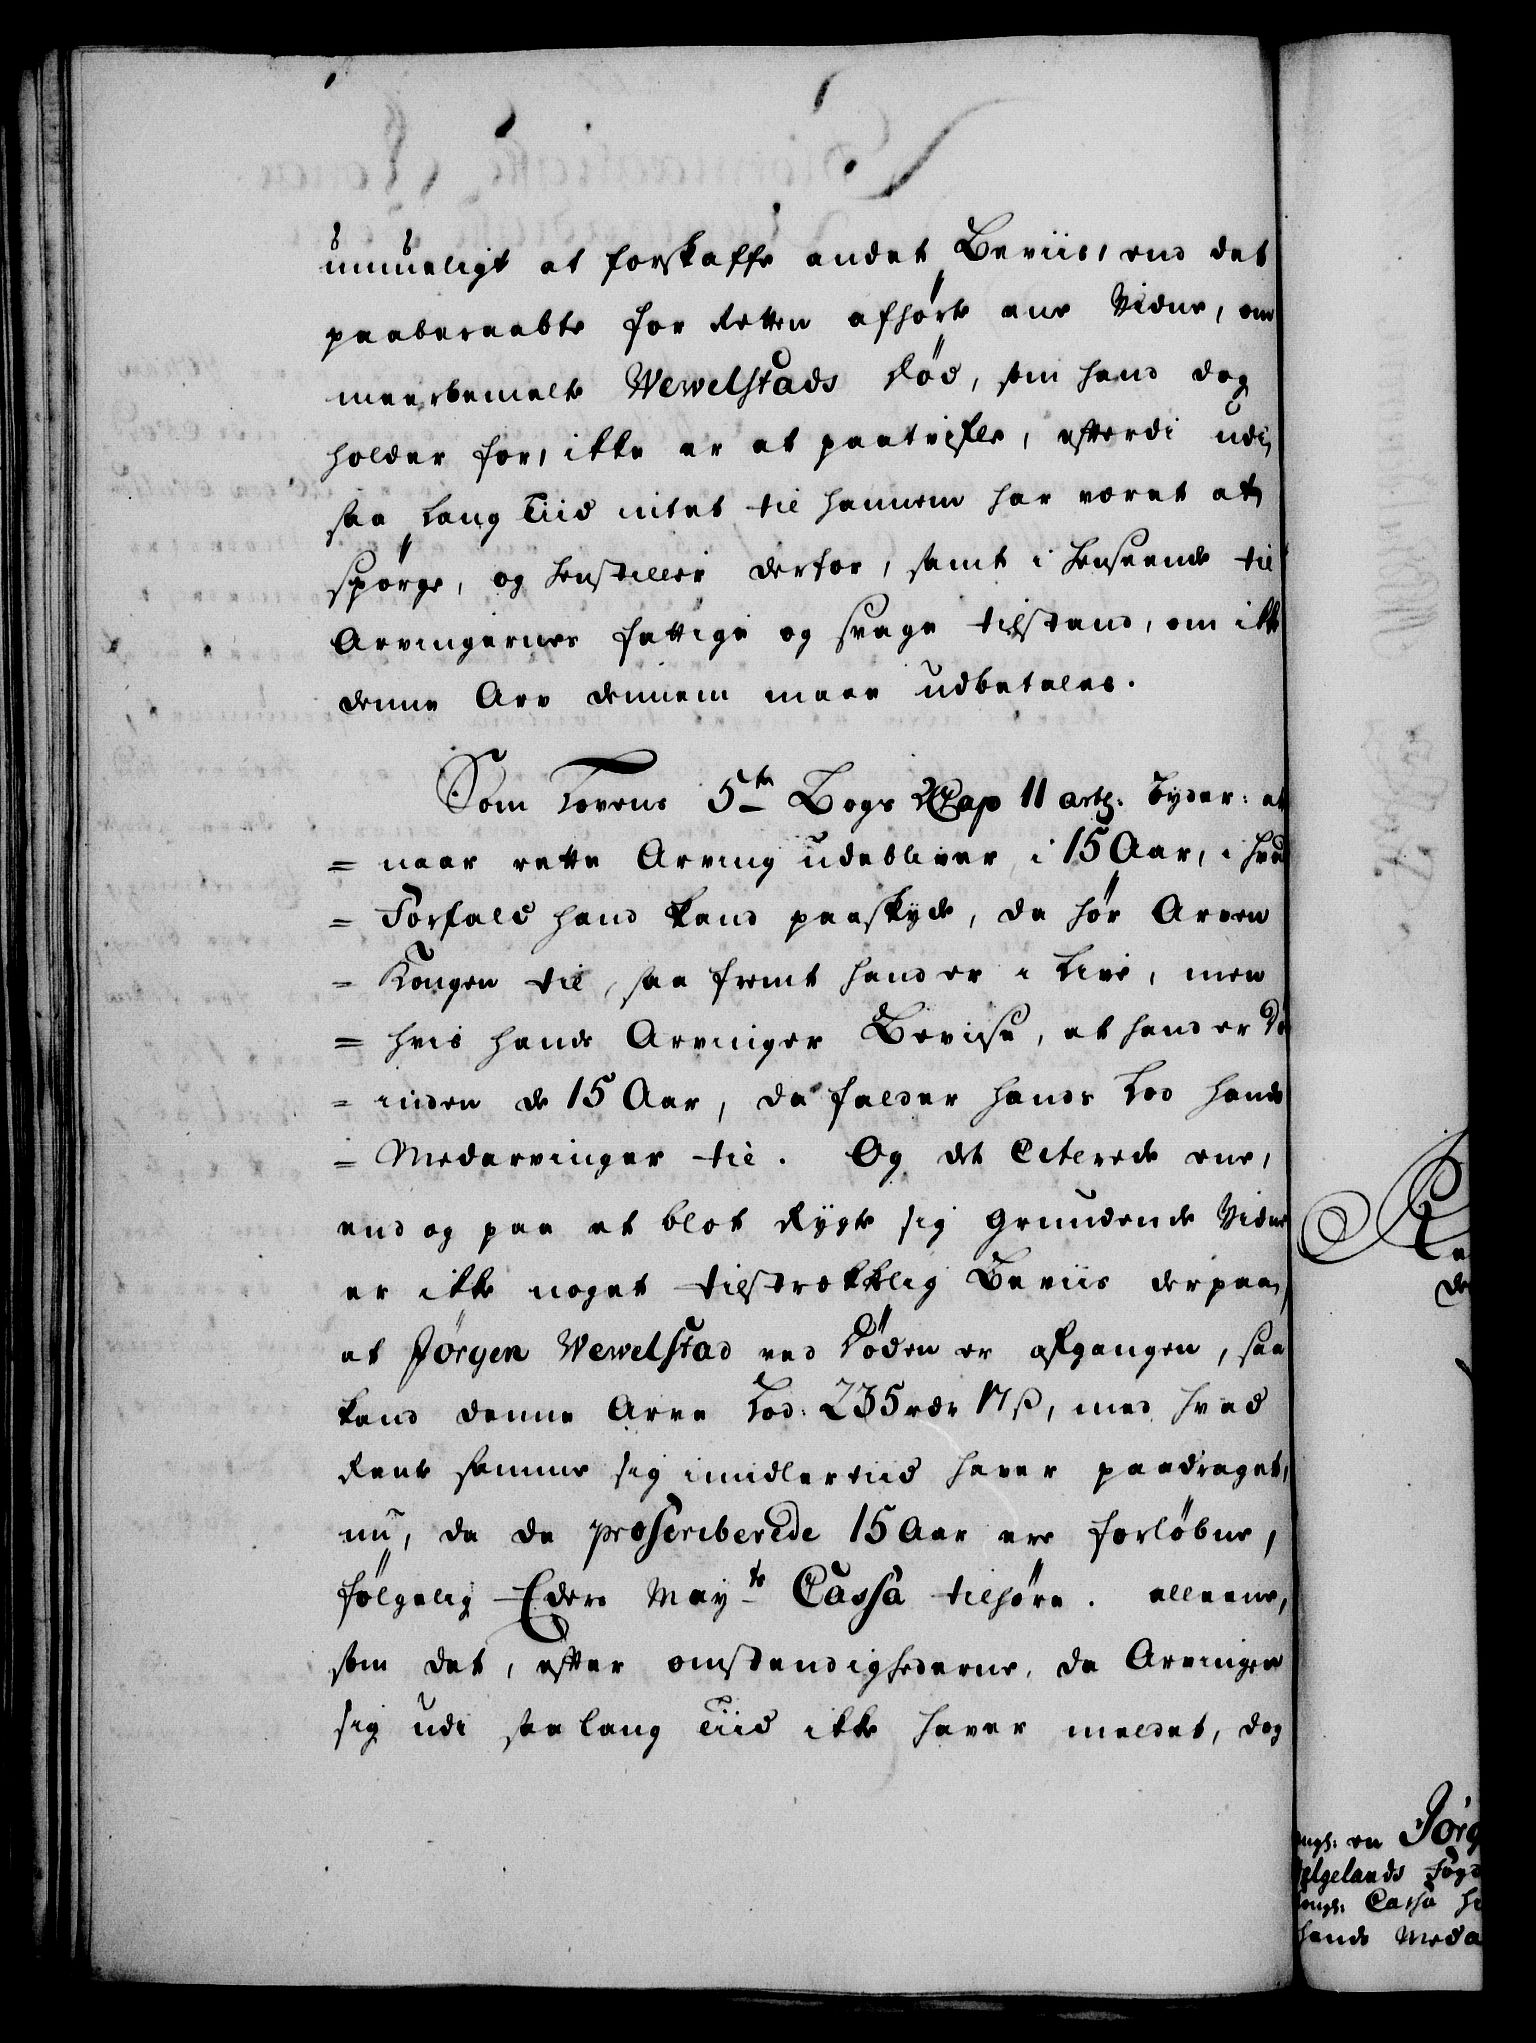 umueligt at forskaffe andet Beviis, end det
paaberaabte for Retten afhørte ene Vidne, om
meerbemelte Wewelstads Død, som hand dog
holder for, ikke er at paatvifle, efterdi udi
saa lang Tiid intet til hannem har været at
spørge, og henstiller derfor, samt i henseende til
Arvingernes fattige og svage tilstand, om ikke
denne Arv dennem maae udbetales.
Som Lovens 5te Bogs Cap 11 art: byder: at
= naar rette Arving udebliver i 15 Aar, i hvad
= Forfald hand kand paaskyde, da hør Arven
= Kongen til, saa fremt hand er i Live, men
= hvis hands Arvinger Beviise, at hand er dø
= inden de 15 Aar, da falder hands Lod hands
= Medarvinger til. Og det Citerede ene,
end og paa et blot Rygte sig grundende Vidne
er ikke noget tilstrekkelig Beviis derpaa,
at Jørgen Wewelstad ved Døden er afgangen, saa
kand denne Arve Lod 235 rdr 17 ß, med hvad
Rente samme sig imidlertiid haver paadraget,
nu, da de proscriberede 15 Aar ere forløbne,
følgelig Eders Mayts Cassa tilhøre. alleene,
som det, efter omstændighederne, da Arvingerne
sig udi saa lang Tiid ikke haver meldet, dog
Jørg
elgelands Fogd
Cassa
hands Meda